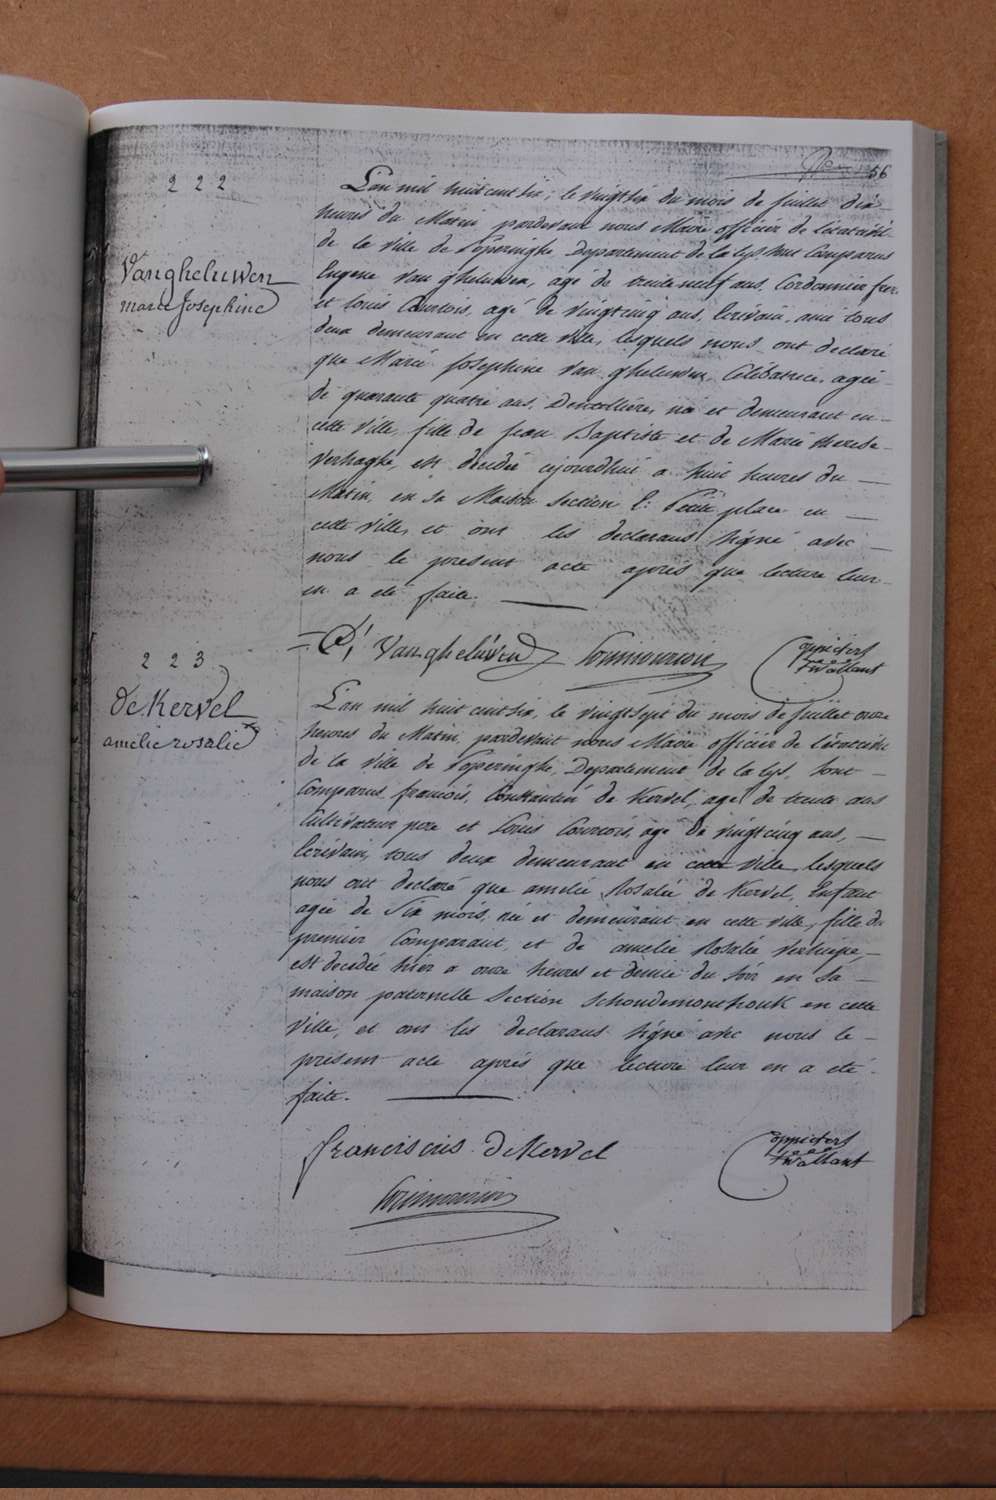 56
222
Vangheluwen
marie Josephine
L'an mil huit cent six, le vingtsix du mois de juillet dix
heures du Matin pardevant nous Maire officier de l'état civil
de la ville de Poperinghe Departement de la lys sont Comparus
Eugene Van gheluwen, agé de trente neuf ans, Cordonnier frere
et Louis Courtois, agé de vingtcinq ans, Ecrivain, ami tous
deux demeurant en cette ville, lesquels nous ont declaré
que Marie Josephine Van gheluwen, Célibatrice, agée
de quarante quatre ans, Dentellière, né et demeurant en
cette ville, fille de Jean Baptiste et de Marie therese
Verhaghe, est decedée cejourdhui a huit heures du
Matin, en sa Maison Section E: Petite place en
cette ville, et ont les declarans signé avec
nous le present acte après que lecture leur
en a été faite.
Vangheluwen
223
de Kervel
amelie rosalie
L'an mil huit cent six, le vingtsept du mois de Juillet onze
heures du Matin, pardevant nous Maire officier de l'état civil
de la ville de Poperinghe, Departement de la lys, Sont
Comparus, francois, Constantin de Kervel, agé de trente ans
Cultivateur pere et Louis Courtois, agé de vingtcinq ans,
Ecrivain, tous deux demeurant en cette ville, lesquels
nous ont declaré que amelie Rosalie de Kervel, Enfant
agée de Six mois, née et demeurant en cette ville, fille du
premier Comparant, et de amelie Rosalie
est decedée hier a onze heures et demie du soir en sa
maison paternelle Section Schoudemonthouk en cette
ville, et ont les declarans signé avec nous le
présent acte après que lecture leur en a été
faite.
franciscus deKervel